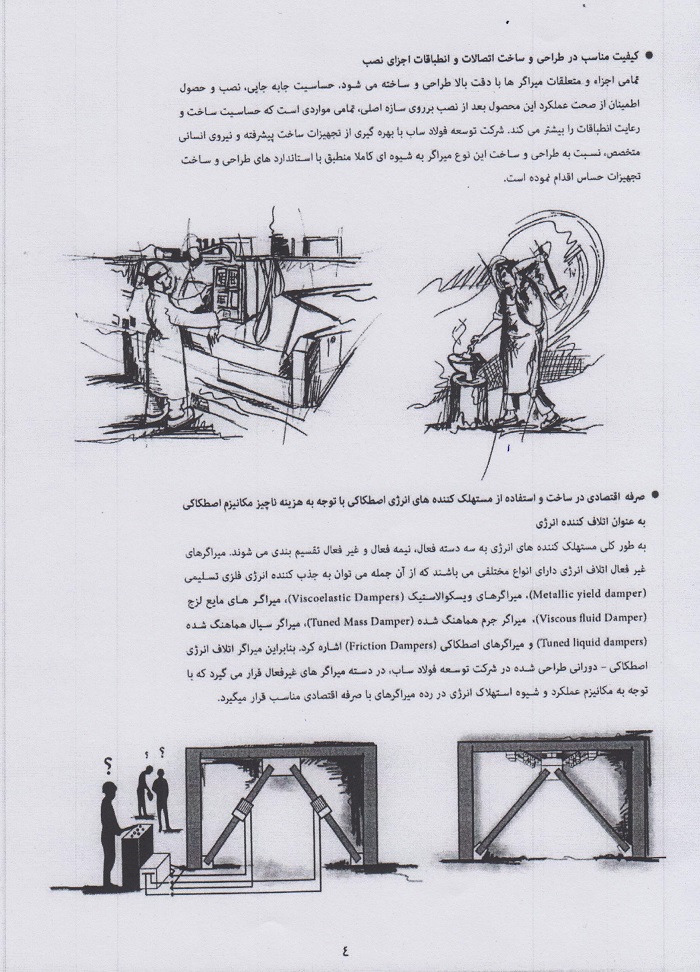 ● کیفیت مناسب در طراحی و ساخت اتصالات و انطباقات اجزای نصب
تمامی اجزاء و متعلقات میراگر ها با دقت بالا طراحی و ساخته می شود. حساسیت جابه جایی، نصب و حصول
اطمینان از صحت عملکرد این محصول بعد از نصب برروی سازه اصلی، تمامی مواردی است که حساسیت ساخت و
رعایت انطباقات را بیشتر می کند. شرکت توسعه فولاد ساب با بهره گیری از تجهیزات ساخت پیشرفته و نیروی انسانی
متخصص، نسبت به طراحی و ساخت این نوع میراگر به شیوه ای کاملا منطبق با استاندارد های طراحی و ساخت
تجهیزات حساس اقدام نموده است.
● صرفه اقتصادی در ساخت و استفاده از مستهلک کننده های انرژی اصطکاکی با توجه به هزینه ناچیز مکانیزم اصطکاکی
به عنوان اتلاف کننده انرژی
به طور کلی مستهلک کننده های انرژی به سه دسته فعال، نیمه فعال و غیر فعال تقسیم بندی می شوند. میراگرهای
غیر فعال اتلاف انرژی دارای انواع مختلفی می باشند که از آن جمله می توان به جذب کننده انرژی فلزی تسلیمی
(Metallic yield damper)، میراگرهای ویسکوالاستیک (Viscoelastic Dampers)، میراگر های مایع لزج
(Viscous fluid Damper)، میراگر جرم هماهنگ شده (Tuned Mass Damper)، میراگر سیال هماهنگ شده
(Tuned liquid dampers) و میراگرهای اصطکاکی (Friction Dampers) اشاره کرد. بنابراین میراگر اتلاف انرژی
اصطکاکی - دورانی طراحی شده در شرکت توسعه فولاد ساب، در دسته میراگر های غیرفعال قرار می گیرد که با
توجه به مکانیزم عملکرد و شیوه استهلاک انرژی در رده میراگرهای با صرفه اقتصادی مناسب قرار میگیرد.
؟ ؟ ؟
٤